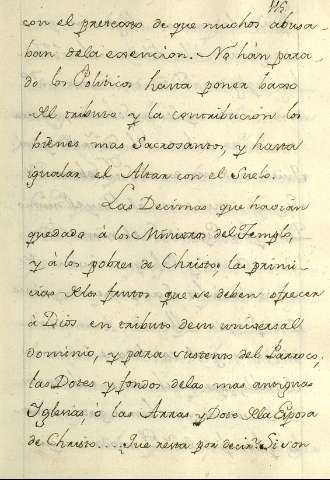 115.
con el pretexto de que muchos abusa-
ban dela esencion. No hán para-
do los Politicos hasta poner baxo
del tributo y la contribución los
biénes mas Sacrosantos, y hasta
igualar el Altar con el Suelo.
Las Decimas que havian
quedado á los Ministros del Templo,
y á los pobres de Christo: las primi-
cias delos frutos que se deben ofrecer
á Diós en tributo desu universal
dominio, y para sustento del Parroco;
las Dotes y fondos delas mas antiguas
Yglesias, ó las Arras y Dote dela Esposa
de Christo.... Que resta por decir? Si son